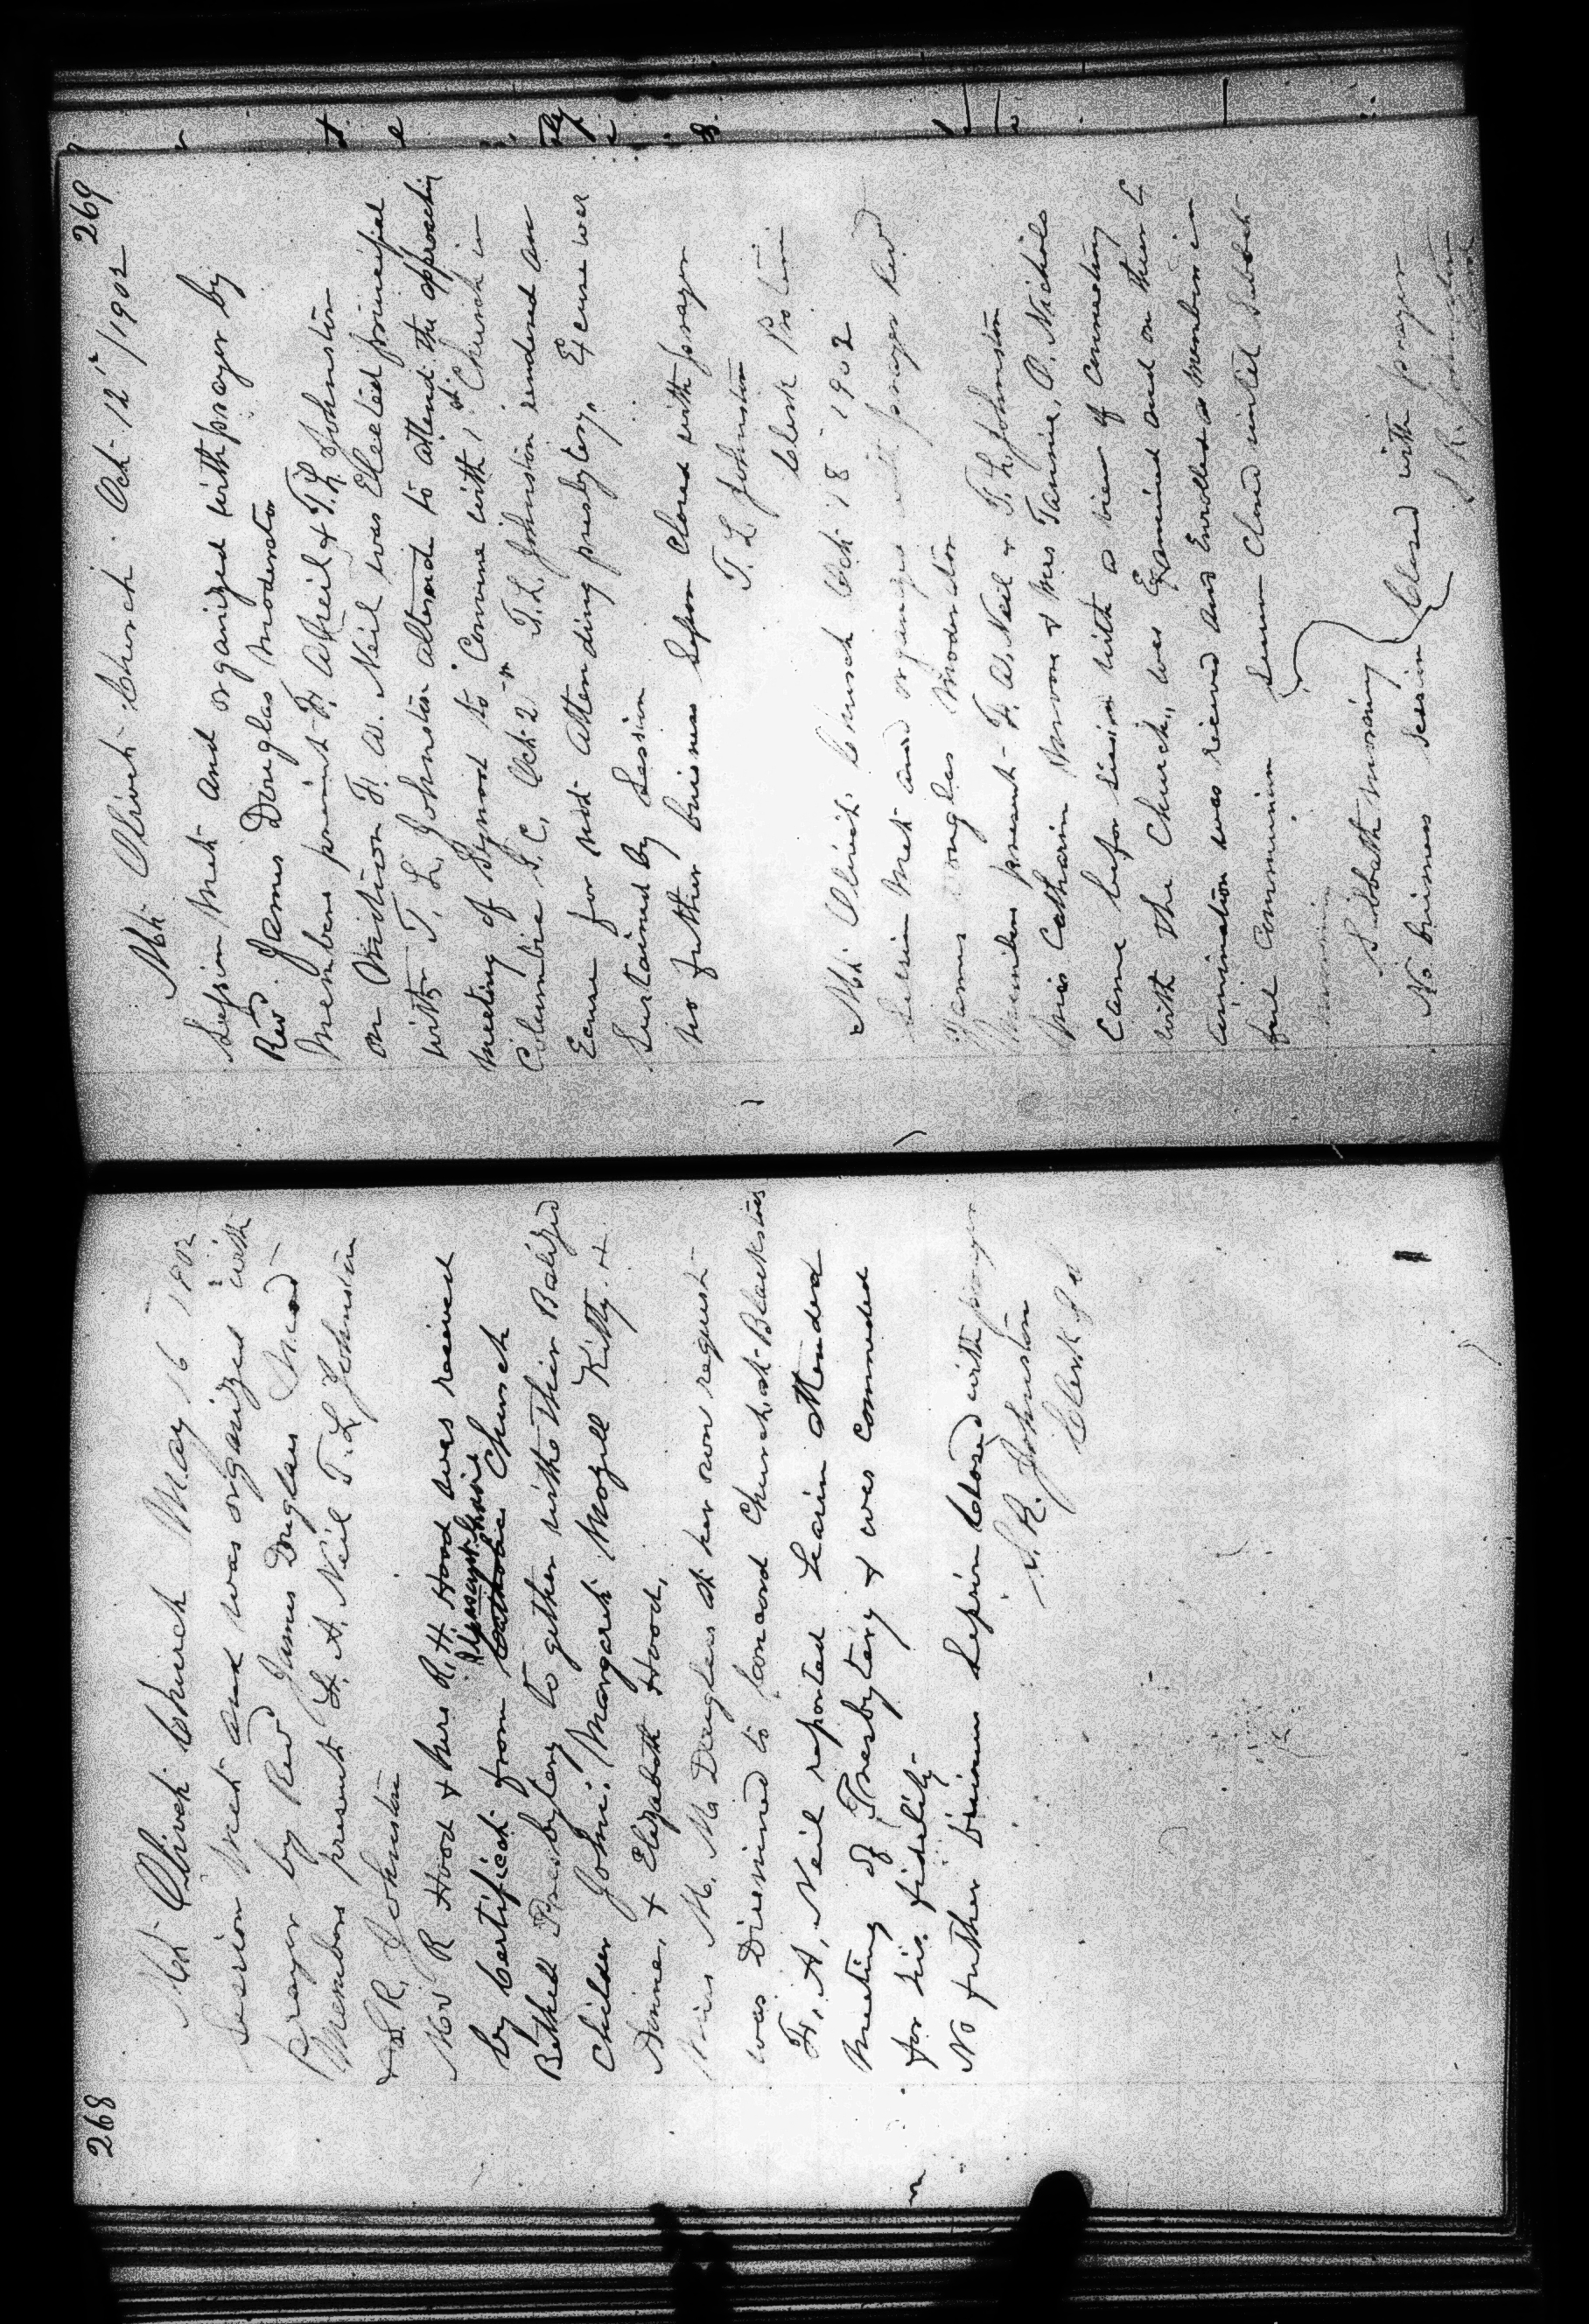 268
Mt Olivet Church May 16 1902
Session met and was organized with
Prayer by Rev James Douglas Mod
Members present F. A. Neil T. L. Johnston
& S. R. Johnston
Mr R Hood & Mrs R. H. Hood was received
by Certificat from Catholic Church
Bethel Presbytery to gether with their Batized
Childer John: Margaret Mozell Kitty &
Annie, & Elizabeth Hood,
Miss M. M. Douglas at her own request
was Dismissed to Concord Church, at Blackstock
F, A, Neil reported having attended
meeting of Presbytery & was commended
for his fidelity
No further business Session Closed with prayer
S. R. Johnston
Clerk
269
Mt Olivet Church Oct 12 / 1902
Session Met and organized with prayer by
Rev James Douglas Moderator
Members present F. A Neil & T. L. Johnston
on Motion F. A. Neil was Elected principal
with T. L. Johnston alternate to attend the approching
meeting of Synod to Convene with 1st Church in
Columbia S. C, Oct 2 T. L. Johnston rendered an
Ecuse for not attending presbytery, Excuse was
Sustained by Session
No further buisness Session Closed with prayer
T. L Johnston
Clerk Pro tem
Mt Olivet, Church Oct 18 1902
Session Met and organized with prayer Rev
James Douglas Moderator
Members present F. A. Neil & T. L. Johnston
Miss Catharin & Mrs Tannie, A. Nichols
Came before Session with a view of Connecting
with the Church, was Examined and on their
was recieved and Enrolled as members in
full Communion Session Closed until Sabbath
morning
Sabbath morning
No buisness Session Closed with prayer
S. R. Johnston